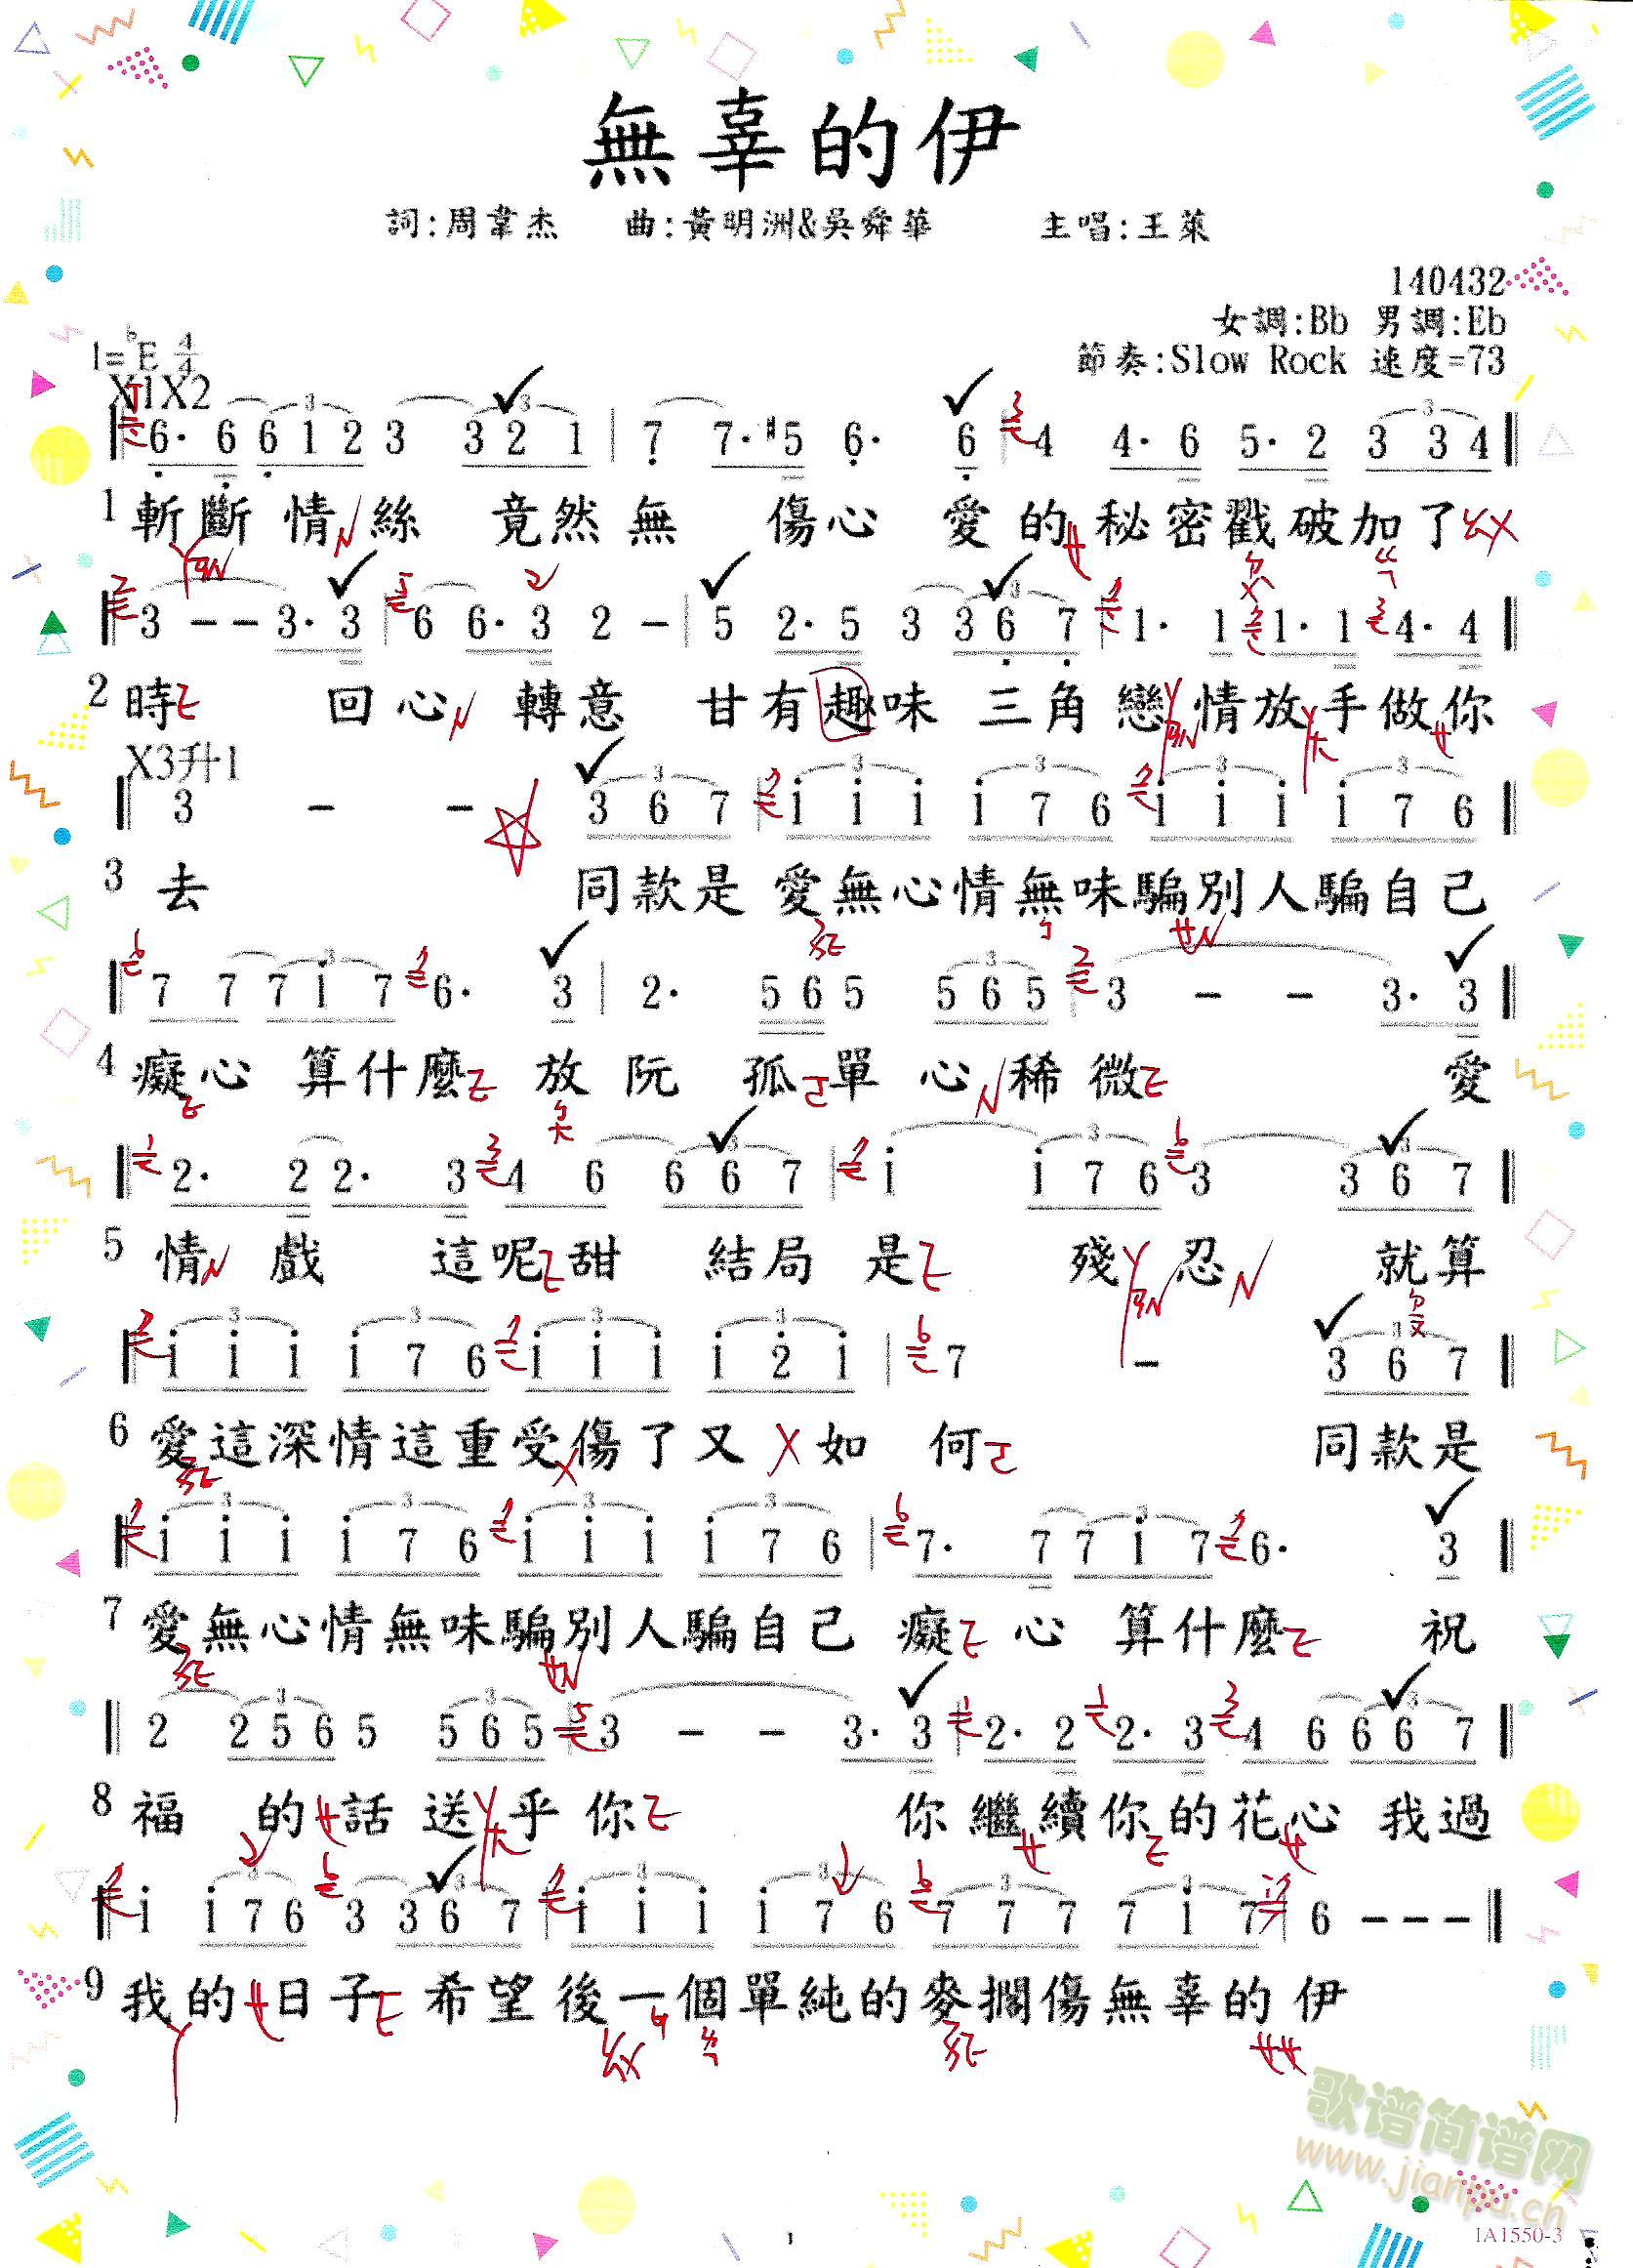 無辜的伊
詞:周韋杰 曲:黃明洲&吳舜華 主唱:王萊
140432
女調:Bb 男調:Eb
1=bE 4/4
節奏:Slow Rock 速度=73
X1X2
6. 6 6 1 2 3 3 2 1 | 7 7. #5 6. 6 | 4 4. 6 5. 2 3 3 4
1 斬斷情絲 竟然無 傷心 愛的秘密戳破加了
3 - - 3. 3 | 6 6. 3 2 - | 5 2. 5 3 3 6 7 | 1. 1 1. 1 4. 4
2 時 回心 轉意 甘有趣味 三角戀情放手做你
X3升1
3 - - 3 6 7 | i i i i 7 6 i i i i 7 6
3 去 同款是 愛無心情無味騙別人騙自己
7 7 7 i 7 6. 3 | 2. 5 6 5 5 6 5 | 3 - - 3. 3
4 癡心 算什麼 放阮 孤單 心稀微 愛
2. 2 2. 3 4 6 6 6 7 | i i 7 6 3 3 6 7
5 情 戲 這呢甜 結局是 殘忍 就算
i i i i 7 6 i i i i 2 i | 7 - 3 6 7
6 愛這深情這重受傷了又 如 何 同款是
i i i i 7 6 i i i i 7 6 | 7. 7 7 i 7 6. 3
7 愛無心情無味騙別人騙自己 癡心 算什麼 祝
2 2 5 6 5 5 6 5 | 3 - - 3. 3 | 2. 2 2. 3 4 6 6 6 7
8 福 的話送乎你 你繼續你的花心 我過
i i 7 6 3 3 6 7 | i i i i 7 6 7 7 7 7 i 7 | 6 - - -
9 我的日子 希望後一個單純的麥擱傷無辜的伊
歌谱简谱网
www.jianpu.cn
1
IA1550-3